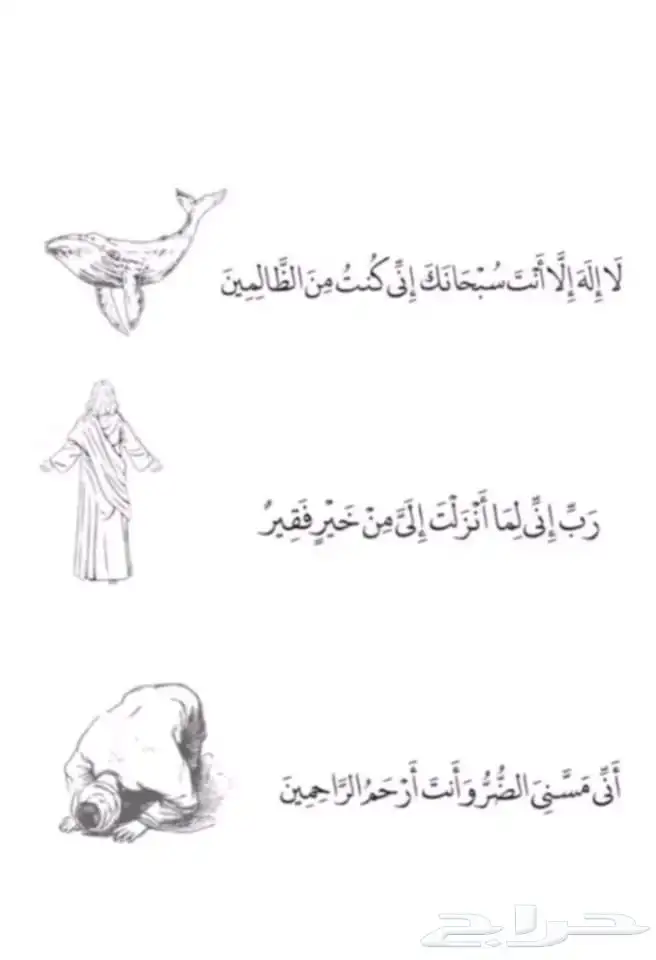 لَا إِلَهَ إِلَّا أَنْتَ سُبْحَانَكَ إِنِّي كُنتُ مِنَ الظَّالِمِينَ
رَبِّ إِنِّي لِمَا أَنْزَلْتَ إِلَيَّ مِنْ خَيْرٍ فَقِيرٌ
أَنِّي مَسَّنِيَ الضُّرُّ وَأَنتَ أَرْحَمُ الرَّاحِمِينَ
حراج